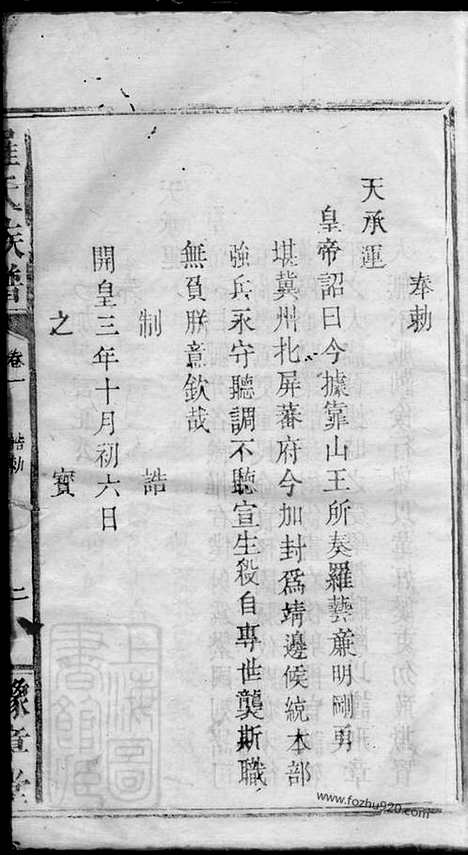 奉勅
天承運
皇帝詔曰今據靠山王所奏羅藝蔗明剛勇
堪冀州北屏蕃府今加封爲靖邊候統本部
強兵永守聽調不聽宣生殺自專世襲斯職
無負朕意欽哉
制誥
開皇三年十月初六日
之寶
羅氏族譜
卷一
誥勅
二
豫章堂
www.fozhu920.com